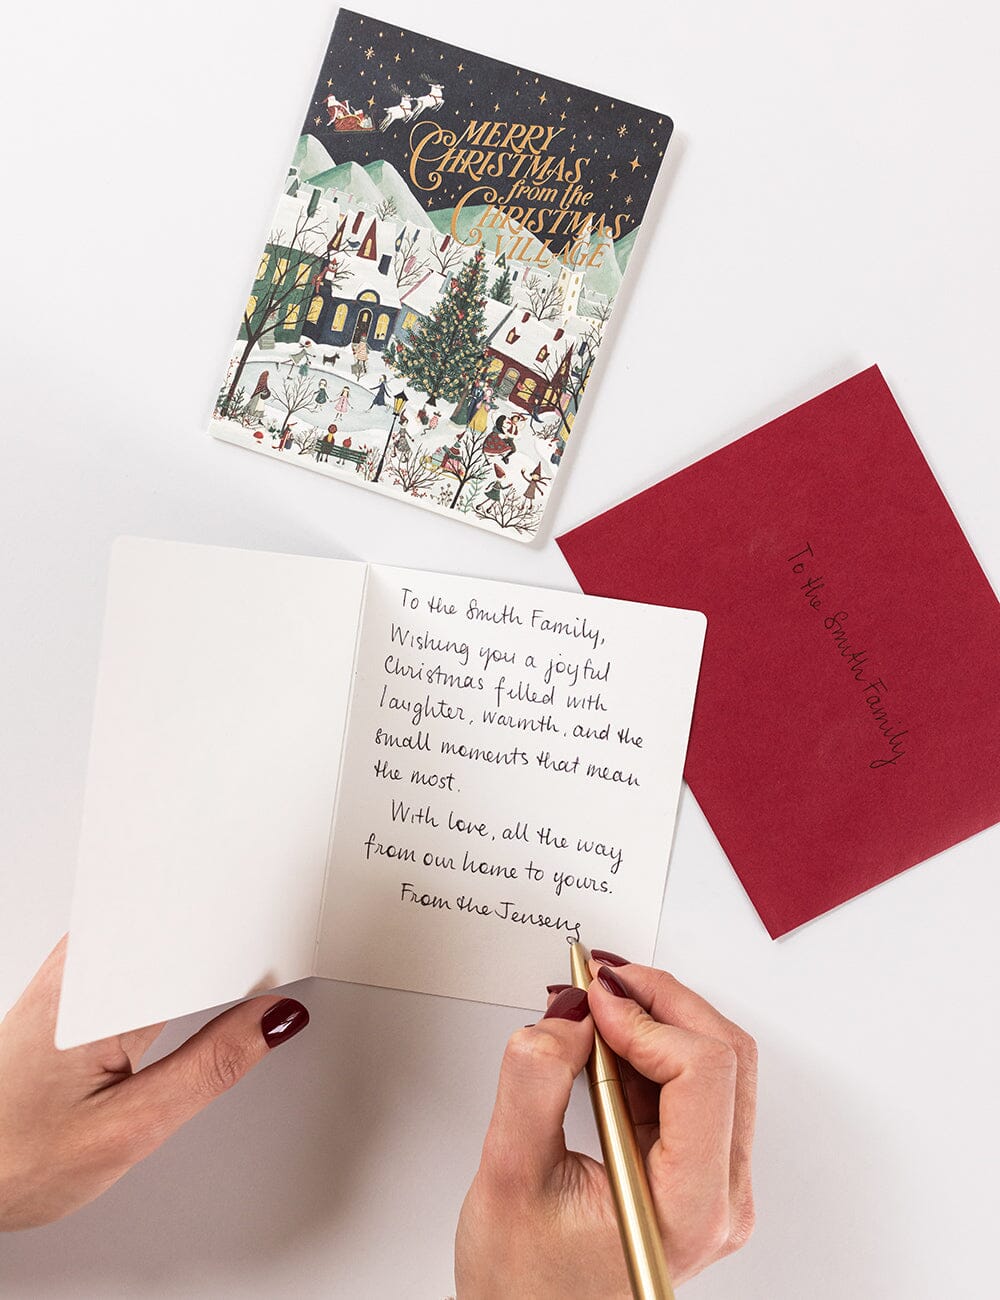 MERRY
CHRISTMAS
from the
CHRISTMAS
VILLAGE
To the Smith Family
To the Smith Family,
Wishing you a joyful
Christmas filled with
laughter, warmth, and the
small moments that mean
the most.
With love, all the way
from our home to yours.
From the Jensens